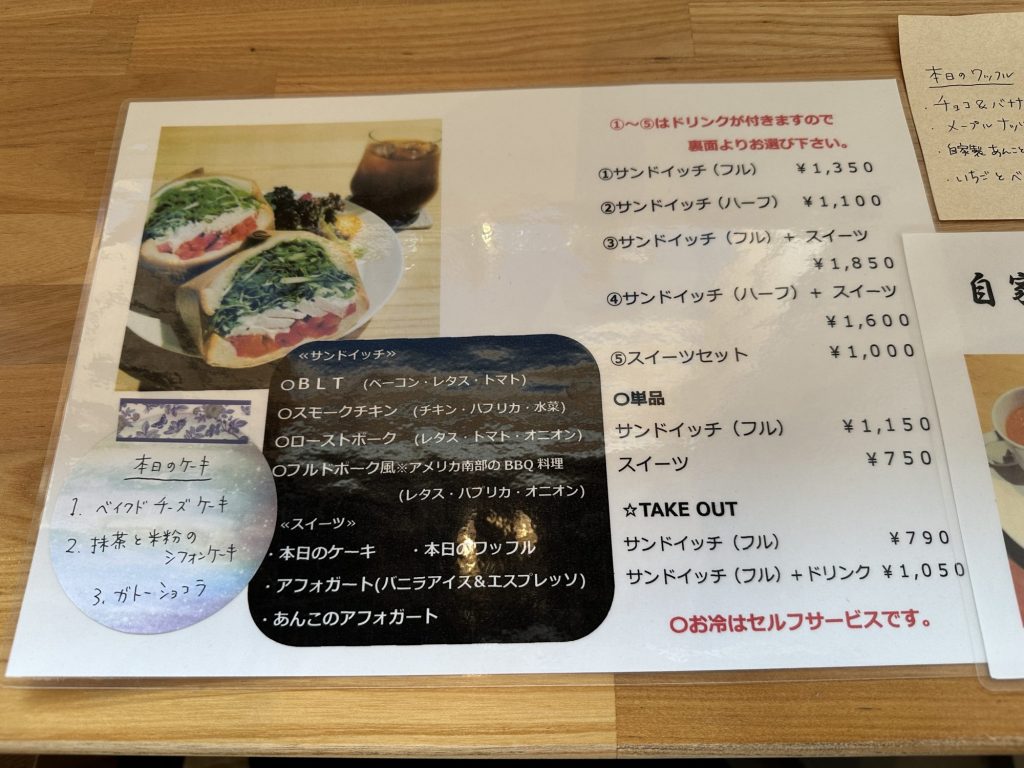 ①～⑤はドリンクが付きますので
裏面よりお選び下さい。
①サンドイッチ（フル） ￥1,350
②サンドイッチ（ハーフ） ￥1,100
③サンドイッチ（フル）＋ スイーツ
￥1,850
④サンドイッチ（ハーフ）＋ スイーツ
￥1,600
⑤スイーツセット ￥1,000
〇単品
サンドイッチ（フル） ￥1,150
スイーツ ￥750
☆TAKE OUT
サンドイッチ（フル） ￥790
サンドイッチ（フル）＋ドリンク ￥1,050
〇お冷はセルフサービスです。
≪サンドイッチ≫
〇ＢＬＴ （ベーコン・レタス・トマト）
〇スモークチキン （チキン・パプリカ・水菜）
〇ローストポーク （レタス・トマト・オニオン）
〇プルドポーク風※アメリカ南部のBBQ料理
（レタス・パプリカ・オニオン）
≪スイーツ≫
・本日のケーキ ・本日のワッフル
・アフォガート(バニラアイス＆エスプレッソ)
・あんこのアフォガート
本日のケーキ
1. ベイクドチーズケーキ
2. 抹茶と米粉の
シフォンケーキ
3. ガトーショコラ
本日のワッフル
・チョコ&バナ
・メープルナッツ
・自家製あんこと
・いちごとベ
自家